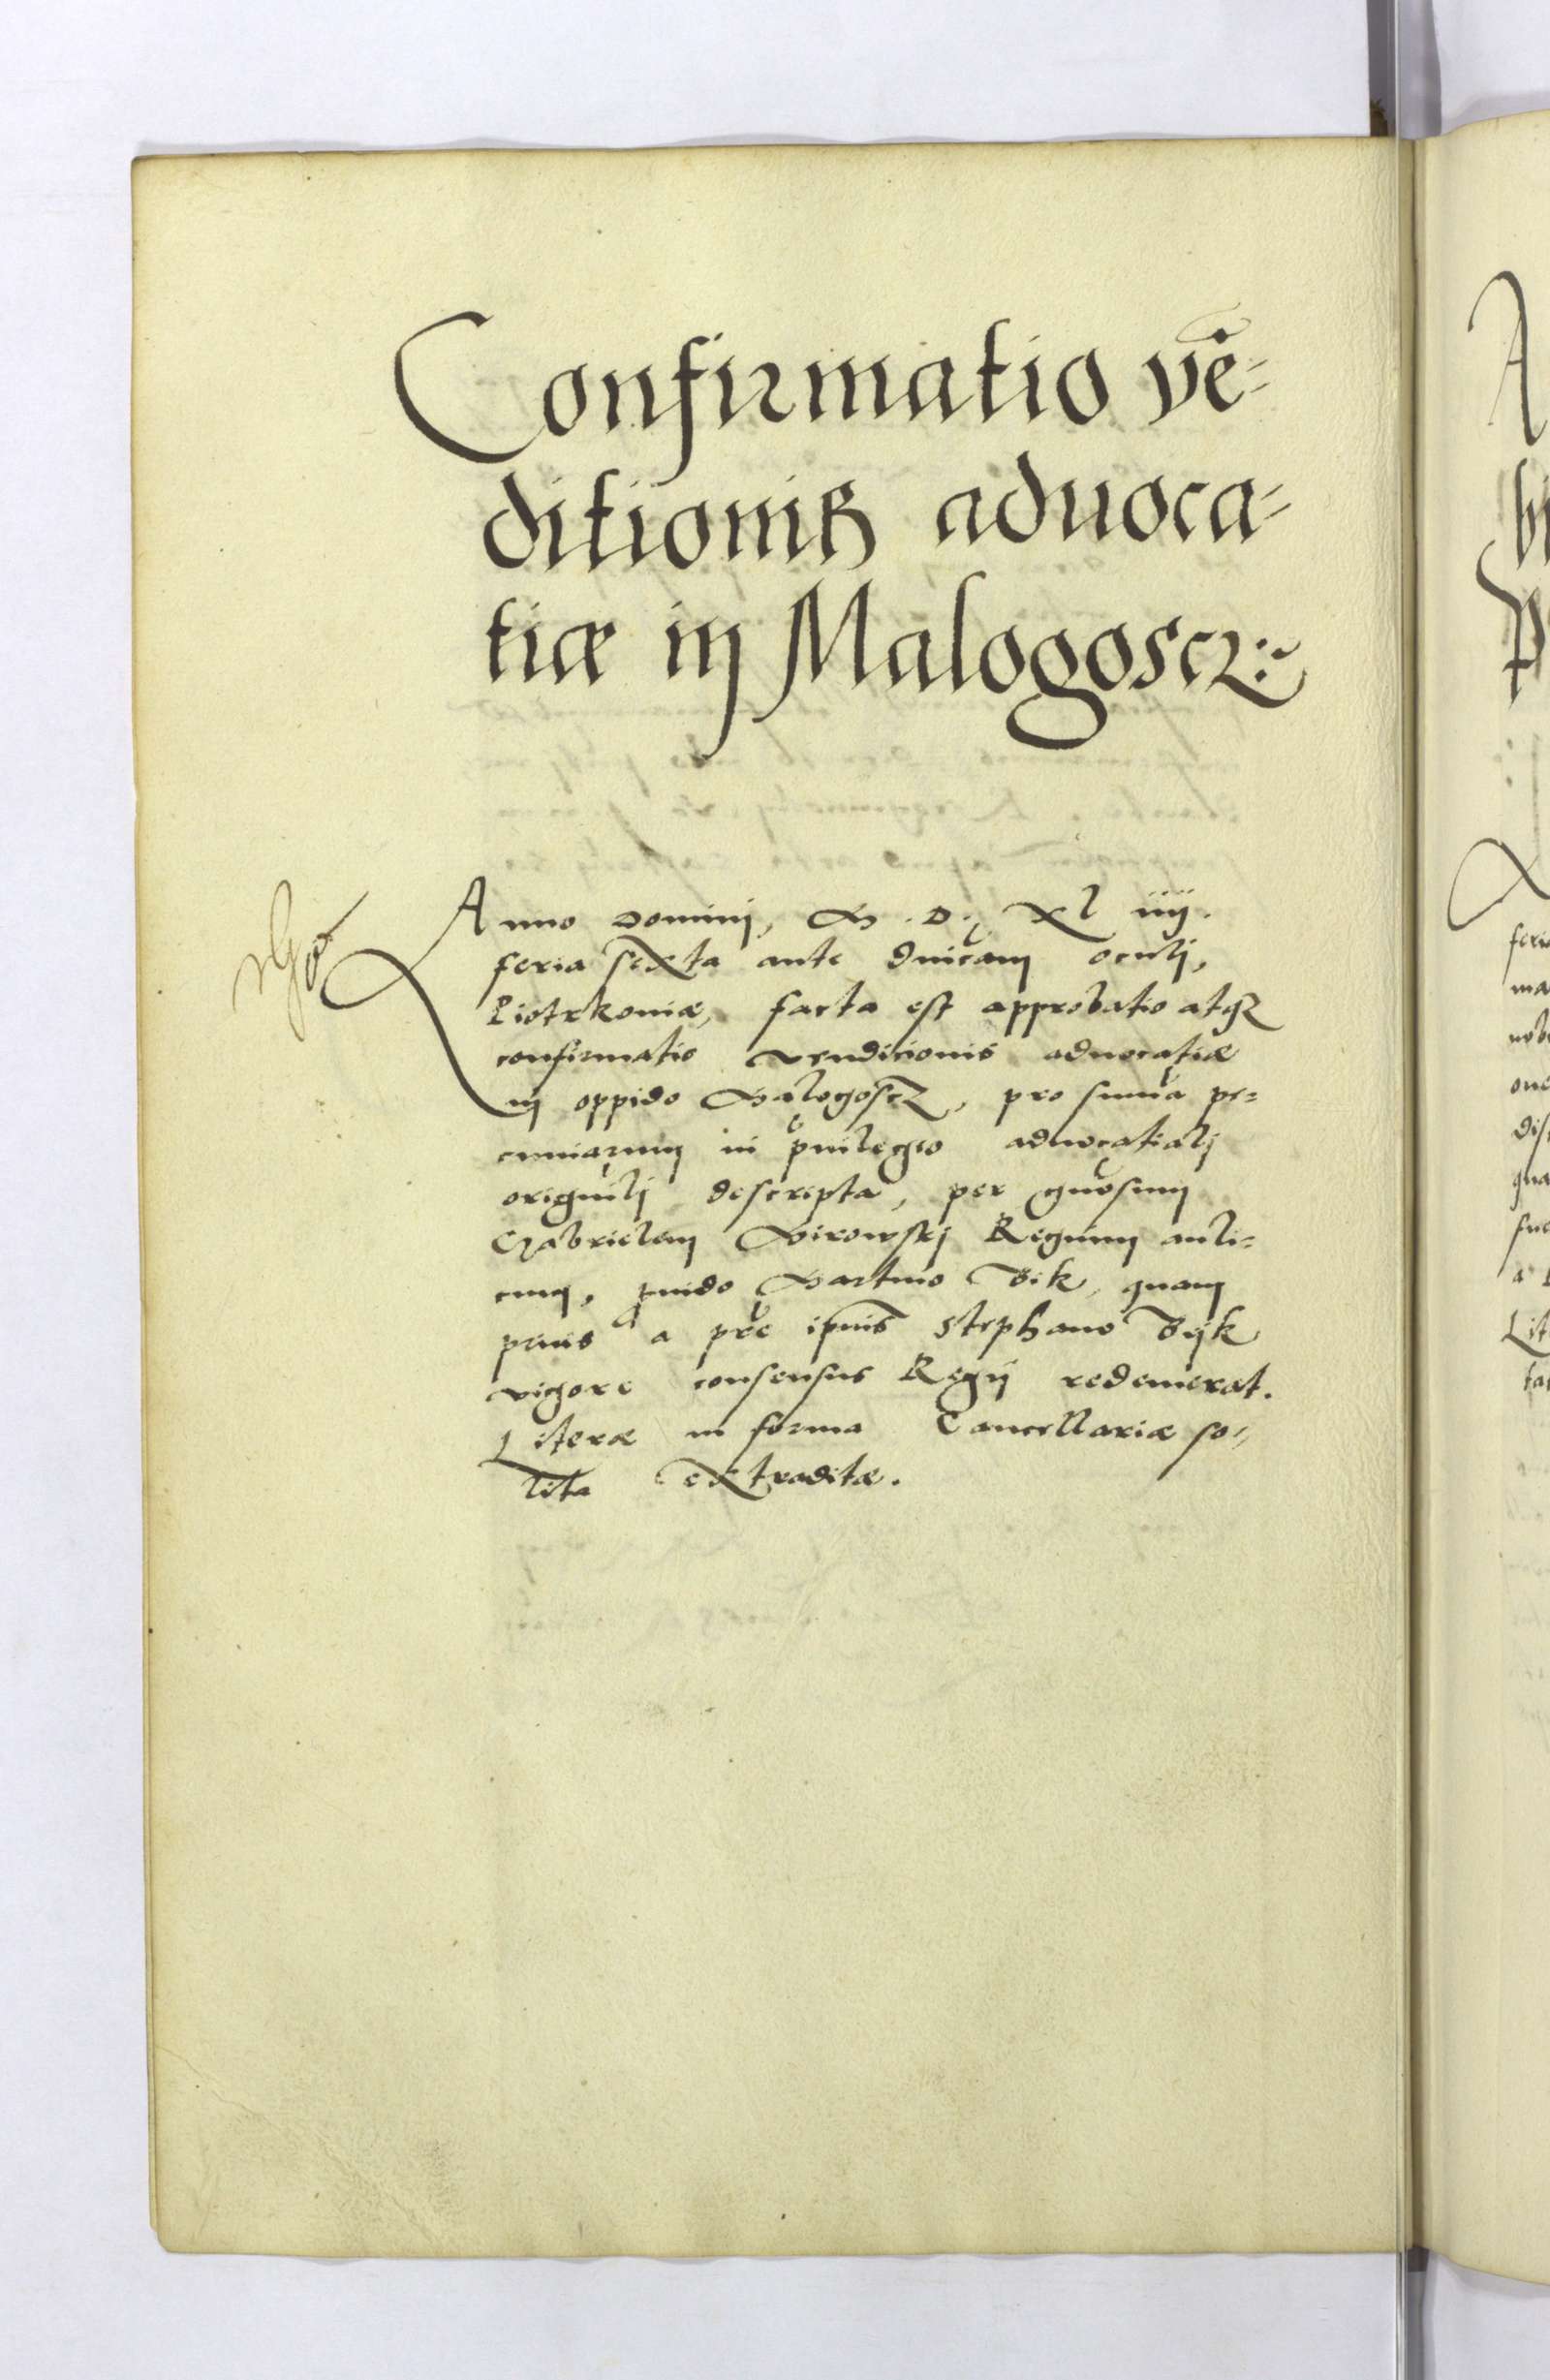 Confirmatio vē-
ditionis aduoca-
tiæ in Malogoscz
Anno Domini, M.D. XL iiij.
feria sexta ante dnicam oculj,
Piotrkoviæ, facta est approbatio atq3
confirmatio vendicionis aduocatiæ
in oppido Malogoscz, pro summa pe-
cuniarum in priuilegio aduocatialj
originlj descripta, per gnosum
Gabrielem Mirowskj Regium auli-
cum, Martino Bik, quam
prius a pre ipsius Stephano Bijk
vigore consensus Regij redemerat.
Literæ in forma Cancellariæ so-
lita extraditæ.